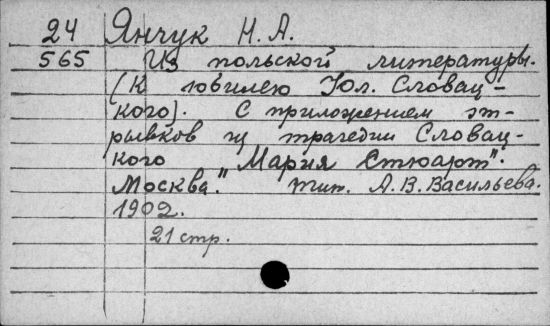 24 Янчук Н. А.
565 Из польской литературы.
(К юбилею Юл. Словац-
кого). С приложением от-
рывков из трагедии Словац-
кого "Мария Стюарт".
Москва. тип. А.В.Васильева.
1902.
21 стр.